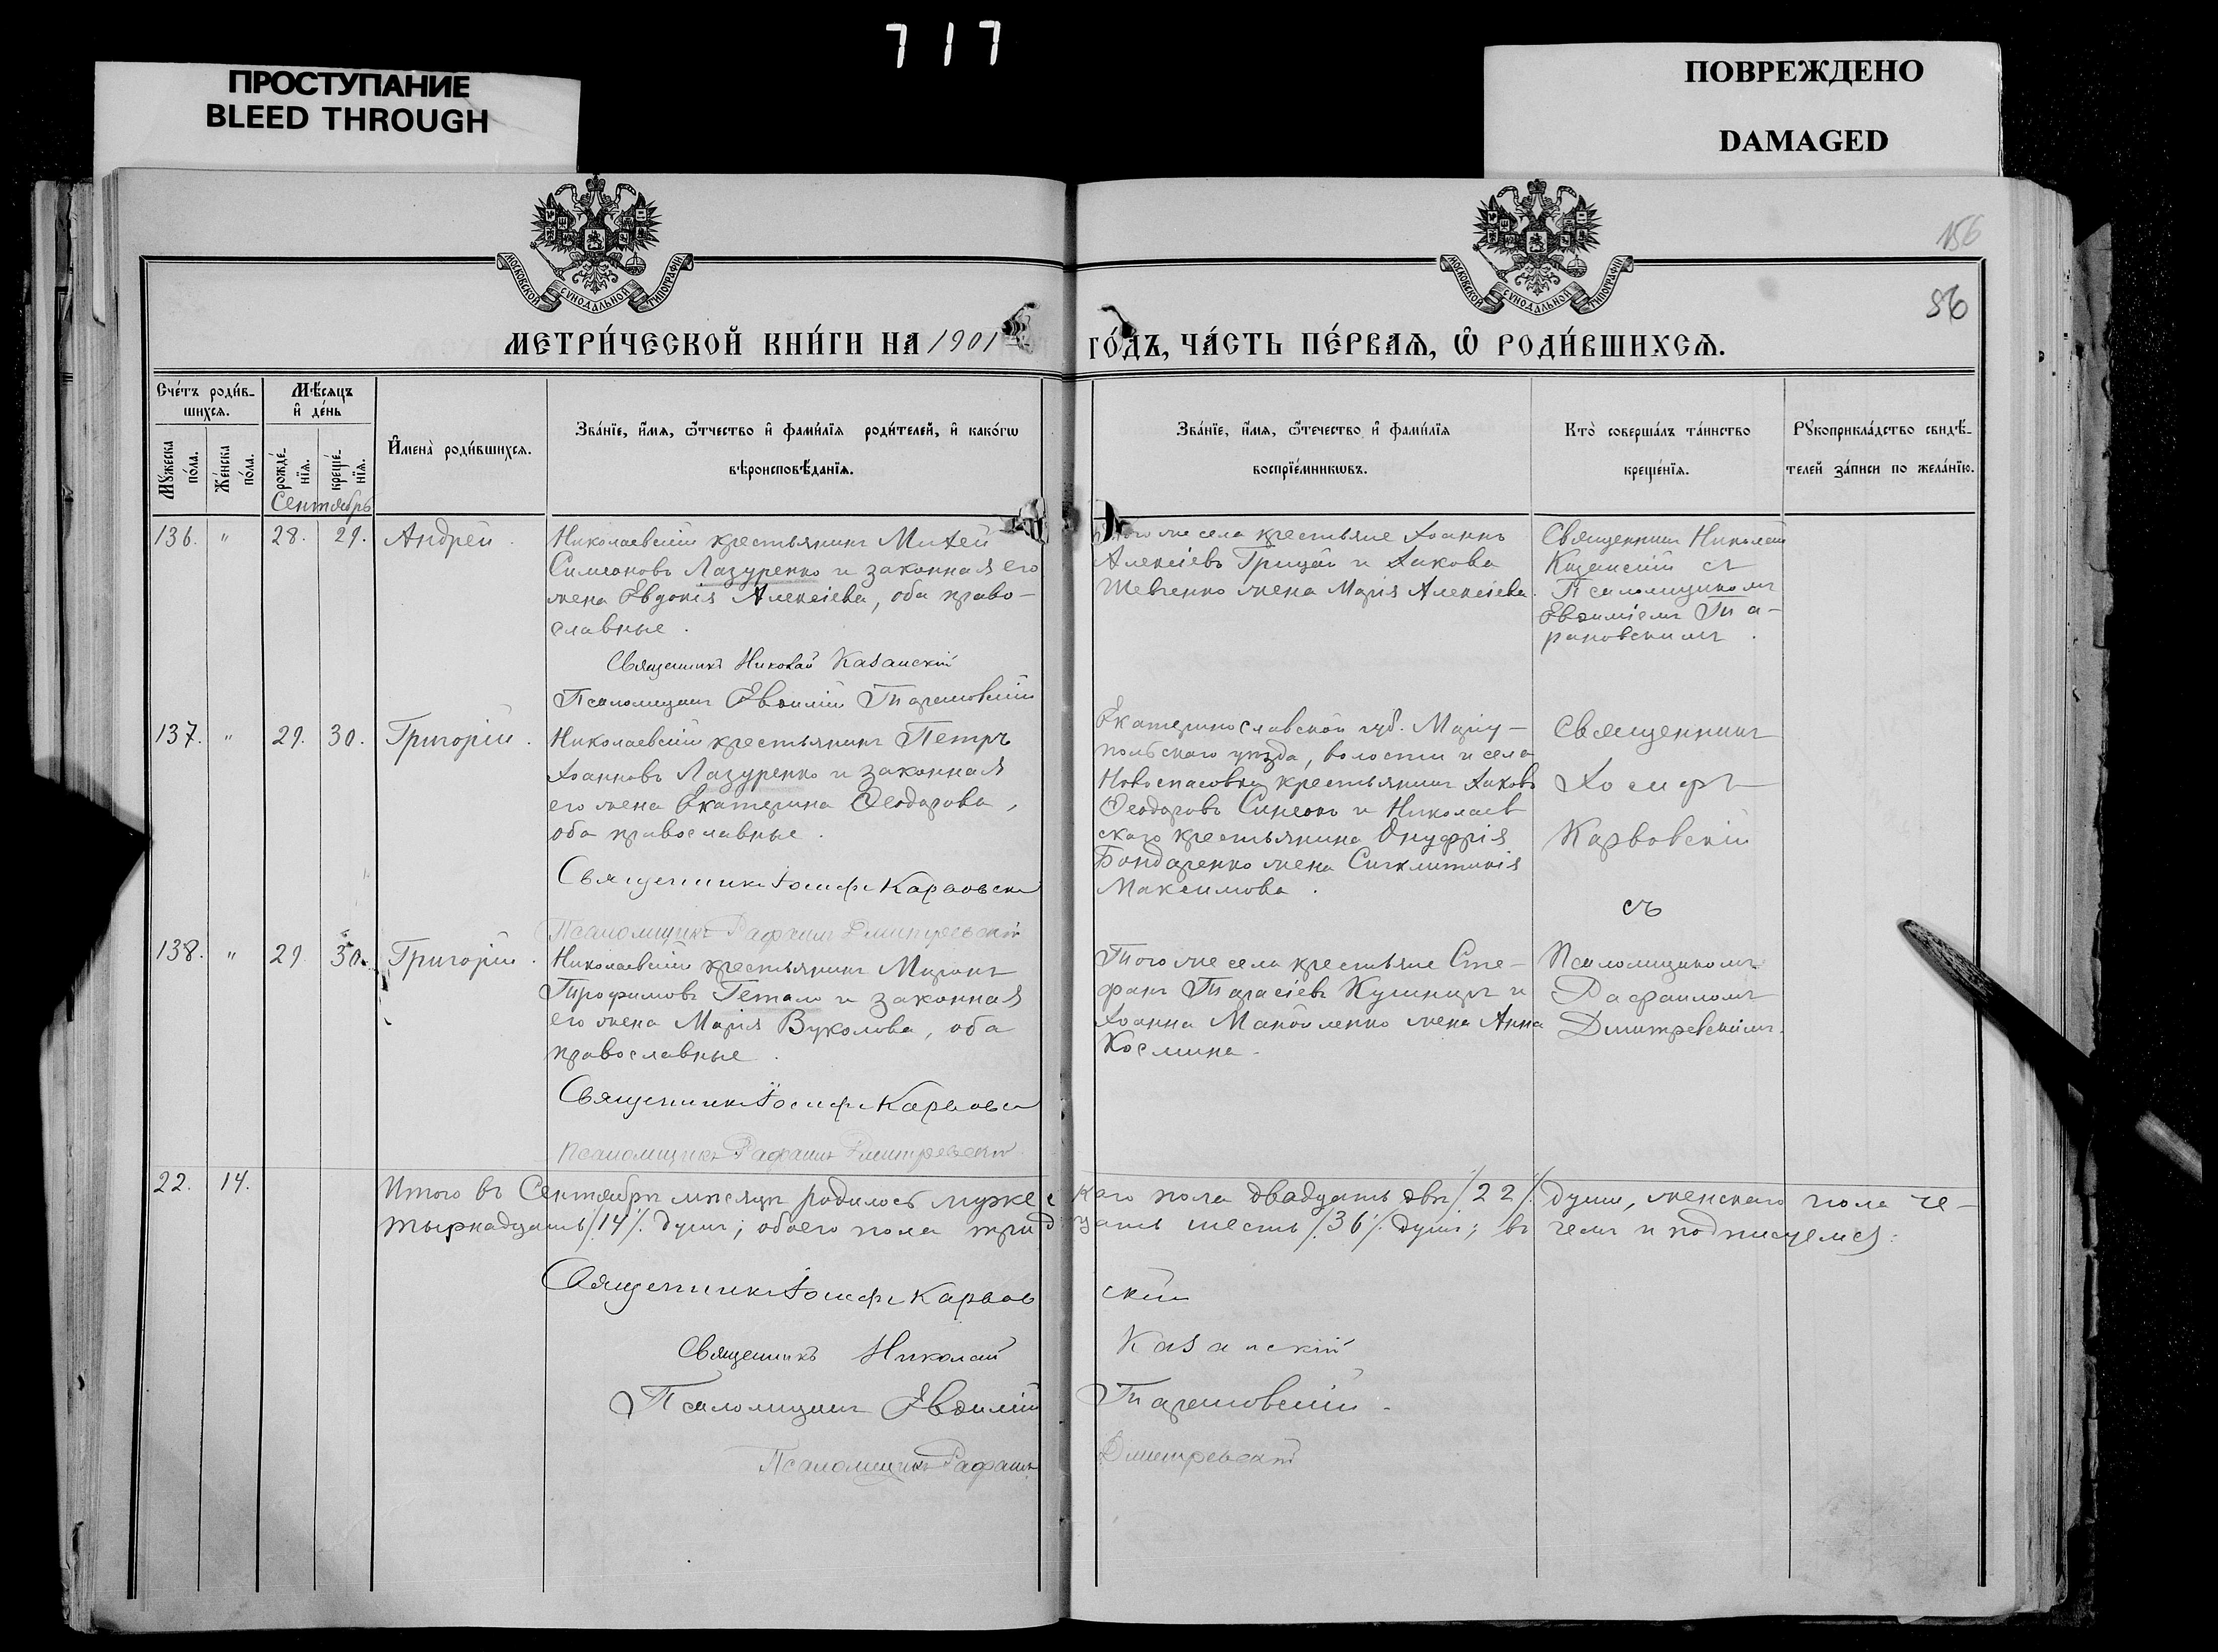 717
ПРОСТУПАНИЕ
BLEED THROUGH
ПОВРЕЖДЕНО
DAMAGED
156
86
МОСКОВСКОЙ СУНОДАЛЬНОЙ ТИПОГРАФІИ
МОСКОВСКОЙ СУНОДАЛЬНОЙ ТИПОГРАФІИ
МЕТРИ́ЧЕСКОЙ КНИ́ГИ НА 1901
ГО́ДЪ, ЧА́СТЬ ПЕ́РВАѦ, Ѿ РОДИ́ВШИХСѦ.
Сче́тъ роди́в-
шихсѧ.
Мꙋжеска по́ла.
Же́нска по́ла.
Мѣ́сѧцъ
и҆ де́нь
рожде́-
нїѧ.
креще́-
нїѧ.
Сентябрь
И҆мена̀ роди́вшихсѧ.
Зва́нїе, и҆́мѧ, ѻ҆́тчество и҆ фами́лїѧ роди́телей, и҆ како́гѡ
вѣроисповѣ́данїѧ.
Зва́нїе, и҆́мѧ, ѻ҆́течество и҆ фами́лїѧ
воспрїе́мникѡвъ.
Кто̀ соверша́лъ та́инство
креще́нїѧ.
Рꙋкоприкла́дство свидѣ́-
телей за́писи по жела́нїю.
136. " 28. 29. Андрей.
Николаевскій крестьянинъ Михей
Симеоновъ Лазуренко и законная его
жена Евдокія Алексіева, оба право-
славные.
Священникъ Николай Казанскій
Псаломщикъ Евѳимій Тарановскій
того же села крестьяне Іоаннъ
Алексіевъ Грицай и Іакова
Шевченко жена Марія Алексіева.
Священникъ Николай
Казанскій съ
Псаломщикомъ
Евѳиміемъ Та-
рановскимъ.
137. " 29. 30. Григорій.
Николаевскій крестьянинъ Петръ
Іоанновъ Лазуренко и законная
его жена Екатерина Ѳеодорова,
оба православные.
Священникъ Іосифъ Карвовскій
Псаломщикъ Рафаилъ Дмитревскій
Екатеринославской губ. Маріу-
польскаго уѣзда, волости и села
Новоспасовки крестьянинъ Іаковъ
Ѳеодоровъ и Николаев
скаго крестьянина Онуфрія
Бондаренко жена Синклитикія
Максимова.
Священникъ
Іосифъ
Карвовскій
съ
138. " 29. 30. Григорій.
Николаевскій крестьянинъ Миронъ
Трофимовъ Гетало и законная
его жена Марія Вуколова, оба
православные.
Священникъ Іосифъ Карвовскій
Псаломщикъ Рафаилъ Дмитревскій
Того же села крестьяне Сте-
фанъ Тарасіевъ Кушниръ и
Іоанна Манойленко жена Анна
Космина.
Псаломщикомъ
Рафаиломъ
Дмитревскимъ.
22. 14. Итого въ Сентябрѣ мѣсяцѣ родилось мужескаго пола двадцать двѣ /22/. души, женскаго пола че-
тырнадцать /14/. душъ; обоего пола тридцать шесть /36/. душъ; въ чемъ и подписуемся:
Священникъ Іосифъ Карвовскій
Священникъ Николай Казанскій
Псаломщикъ Евѳимій Тарановскій.
Псаломщикъ Рафаилъ Дмитревскій